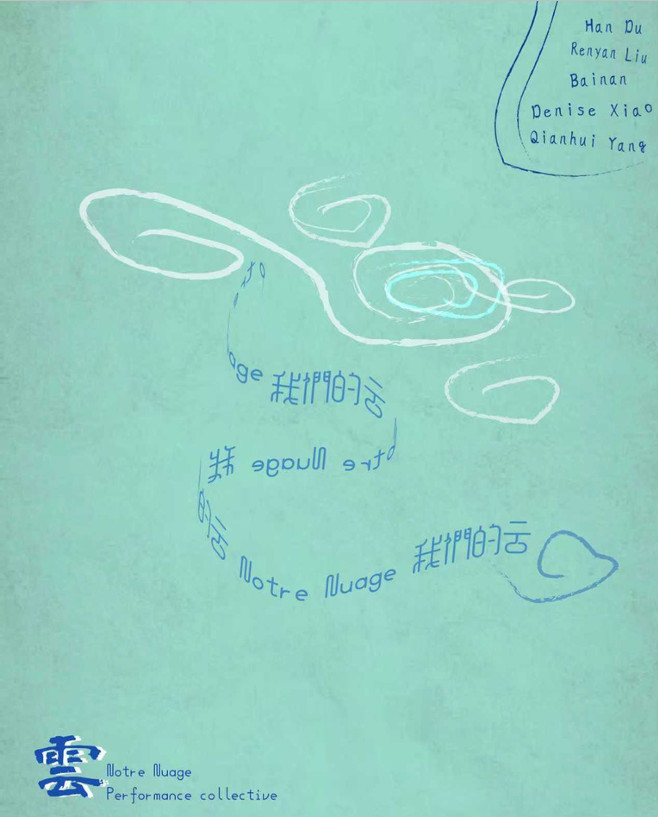 Han Du
Renyan Liu
Bainan
Denise Xiao
Qianhui Yang
age 我們的云
otre Nuage 我
的云 Notre Nuage 我們的云
雲
Notre Nuage
Performance collective